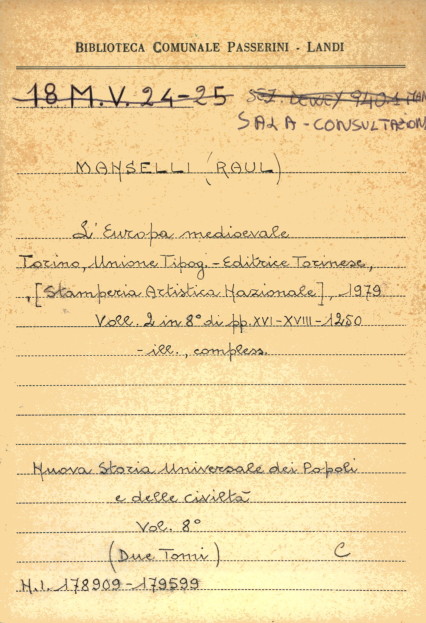 BIBLIOTECA COMUNALE PASSERINI - LANDI
18 M.V. 24-25 SEZ. DEWEY 940.1 MAN
SALA - CONSULTAZION
MANSELLI (RAUL)
L'Europa medioevale
Torino, Unione Tipog.-Editrice Torinese,
, [Stamperia Artistica Nazionale], 1979
Voll. 2 in 8° di pp. XVI-XVIII-1250
- ill., compless.
Nuova Storia Universale dei Popoli
e delle civiltà
Vol. 8°
(Due Tomi) C
N.I. 178909-179599